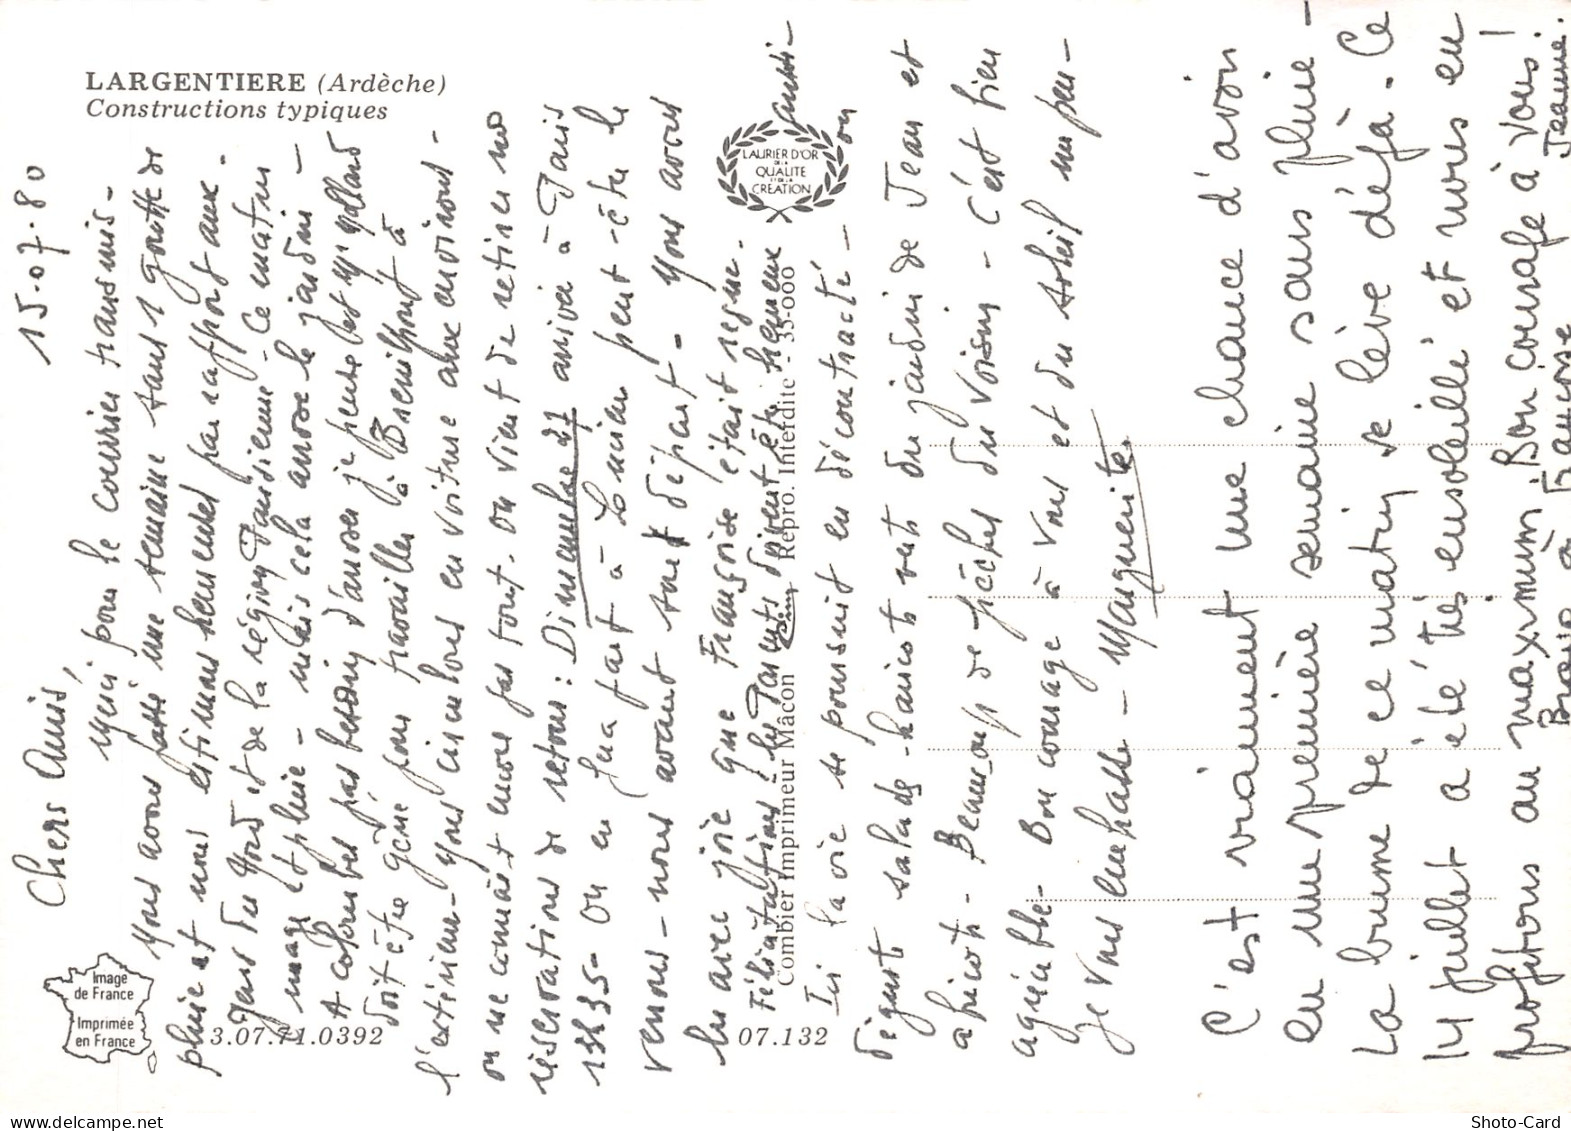 LARGENTIERE (Ardèche)
Constructions typiques
15.07.80
Chers Amis,
Merci pour le courrier transmis -
Nous avons passé une semaine sans 1 goutte de
pluie et nous estimons heureuses par rapport aux
gens du Nord et de la région Parisienne - Ce matin
nuage et pluie - mais cela arrose le jardin -
A Colombes pas besoin d'arroser je pense et Mr
doit être gêné pour travailler à à
l'extérieur - Nous circulons en voiture aux environs -
on ne connaît encore pas tout. On vient de retirer nos
réservations de retour : Dimanche 27 arrivée à Paris
13h35 - On en fera part à Lucien peut-être le
verrons-nous avant son départ - Nous avons
lu avec joie que Françoise était reçue.
Félicitations, les Parents doivent être heureux aussi -
Ici la vie se poursuit en décontracté - on
déguste salade - haricots verts du jardin de Jean et
abricots - Beaucoup de pêches du voisin - C'est bien
agréable - Bon courage à vous et du soleil un peu -
Je vous embrasse - Marguerite
C'est vraiment une chance d'avoir
eu une première semaine sans pluie -
La brume de ce matin se lève déjà - Ce
14 juillet a été très ensoleillé et nous en
profitons au maximum. Bon courage à vous !
Bravo à Françoise Jeanne.
Image
de France
Imprimée
en France
3.07.71.0392
07.132
Combier Imprimeur Mâcon Cim Repro. Interdite - 35-000
LAURIER D'OR
DE LA
QUALITE
ET DE LA
CREATION
Shoto-Card